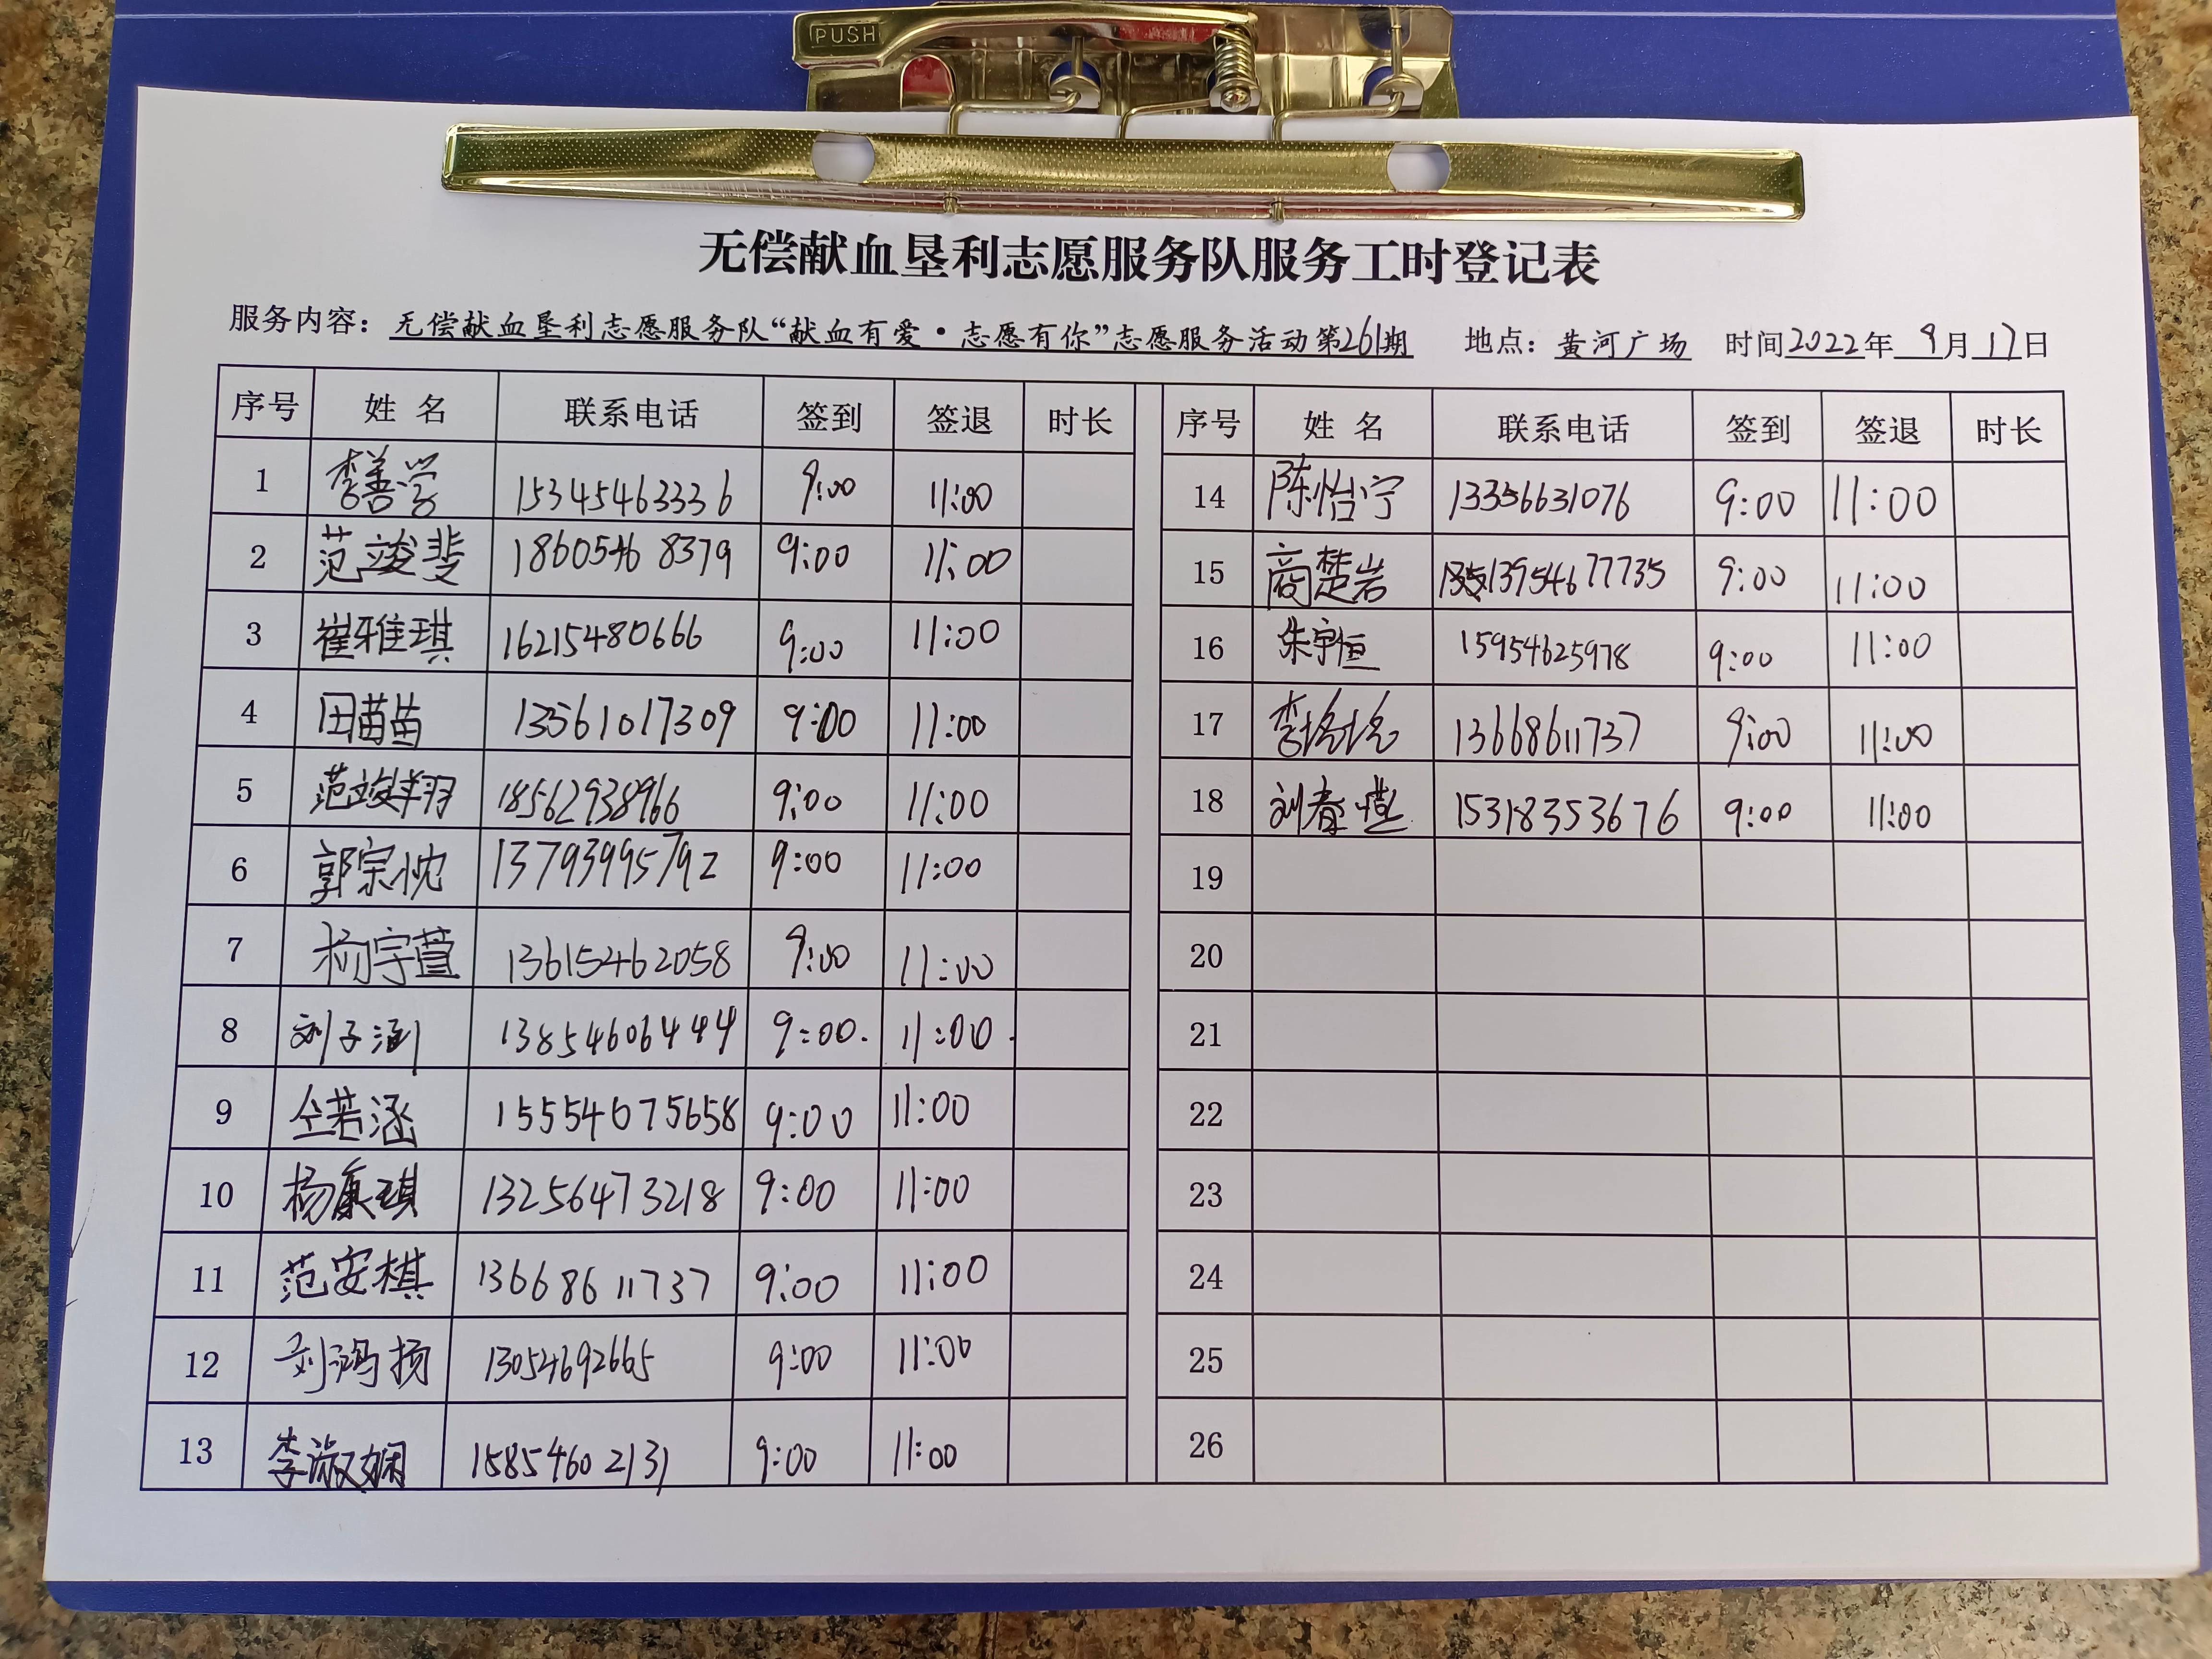 PUSH
无偿献血垦利志愿服务队服务工时登记表
服务内容：无偿献血垦利志愿服务队“献血有爱·志愿有你”志愿服务活动第261期 地点：黄河广场 时间2022年9月17日
序号 姓名 联系电话 签到 签退 时长 序号 姓名 联系电话 签到 签退 时长
1 李善学 15345463336 9:00 11:00 14 陈怡宁 13356631076 9:00 11:00
2 范竣斐 18605468379 9:00 11:00 15 商楚岩 13954677735 9:00 11:00
3 崔雅琪 16215480666 9:00 11:00 16 朱宇恒 15954625978 9:00 11:00
4 田苗苗 13561017309 9:00 11:00 17 李 13668611737 9:00 11:00
5 范竣翔 18562938966 9:00 11:00 18 刘春 15318353676 9:00 11:00
6 郭宗忱 13793995792 9:00 11:00 19
7 杨宇萱 13615462058 9:00 11:00 20
8 刘子涵 13854606444 9:00. 11:00. 21
9 仝若涵 15554675658 9:00 11:00 22
10 杨康琪 13256473218 9:00 11:00 23
11 范安棋 13668611737 9:00 11:00 24
12 刘鸿扬 13054692665 9:00 11:00 25
13 李淑娴 15854602131 9:00 11:00 26